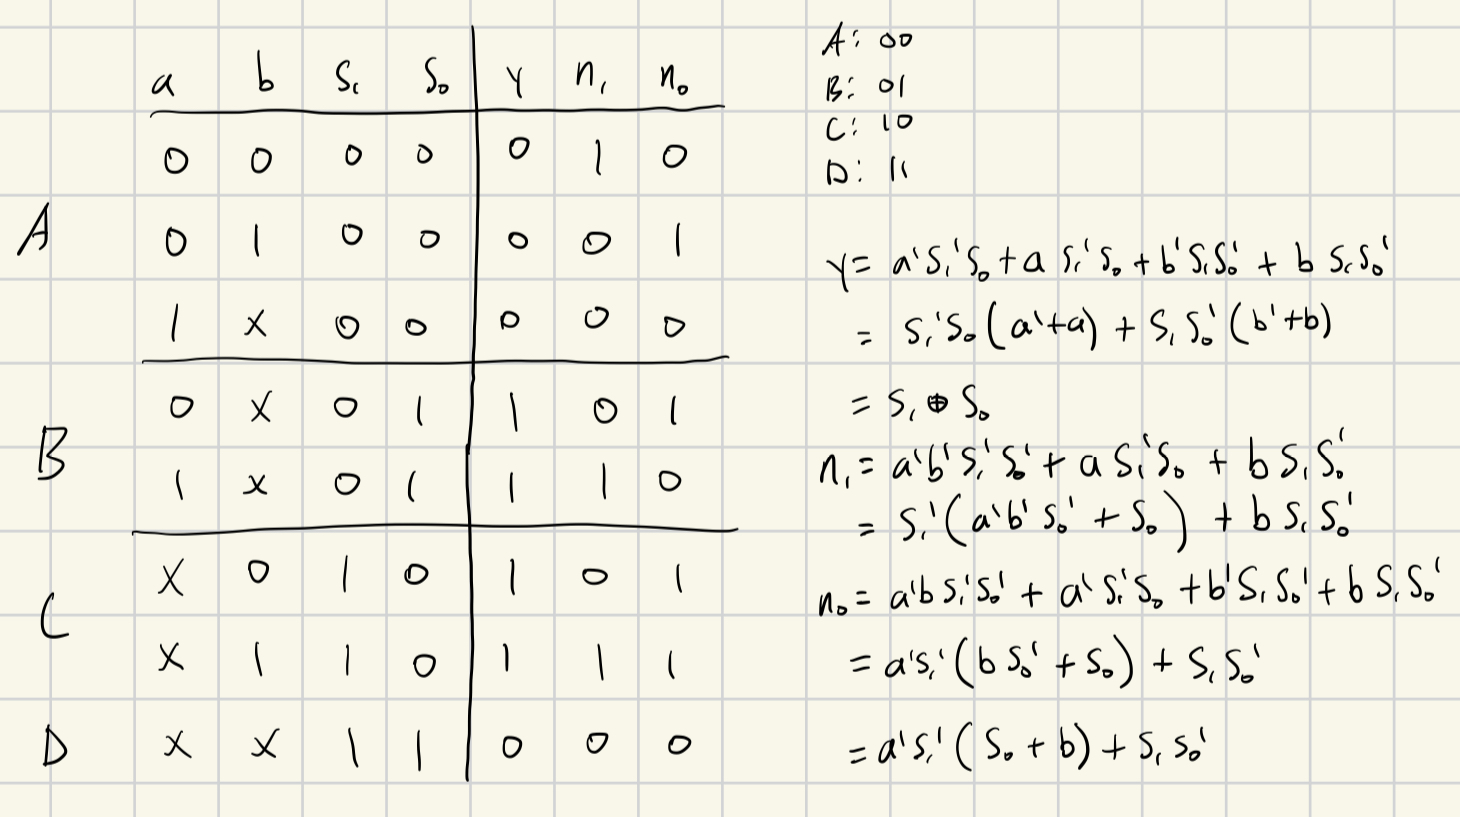 a b S₁ S₀ Y n₁ n₀
0 0 0 0 0 1 0
A
0 1 0 0 0 0 1
1 x 0 0 0 0 0
0 x 0 1 1 0 1
B
1 x 0 1 1 1 0
x 0 1 0 1 0 1
C
x 1 1 0 1 1 1
D x x 1 1 0 0 0
A: 00
B: 01
C: 10
D: 11
Y = a'S₁'S₀ + a S₁'S₀ + b'S₁S₀' + b S₁S₀'
= S₁'S₀(a'+a) + S₁S₀'(b'+b)
= S₁ ⊕ S₀
n₁ = a'b'S₁'S₀' + a S₁'S₀ + b S₁S₀'
= S₁'(a'b'S₀' + S₀) + b S₁S₀'
n₀ = a'b S₁'S₀' + a'S₁'S₀ + b'S₁S₀' + b S₁S₀'
= a'S₁'(b S₀' + S₀) + S₁S₀'
= a'S₁'(S₀ + b) + S₁S₀'